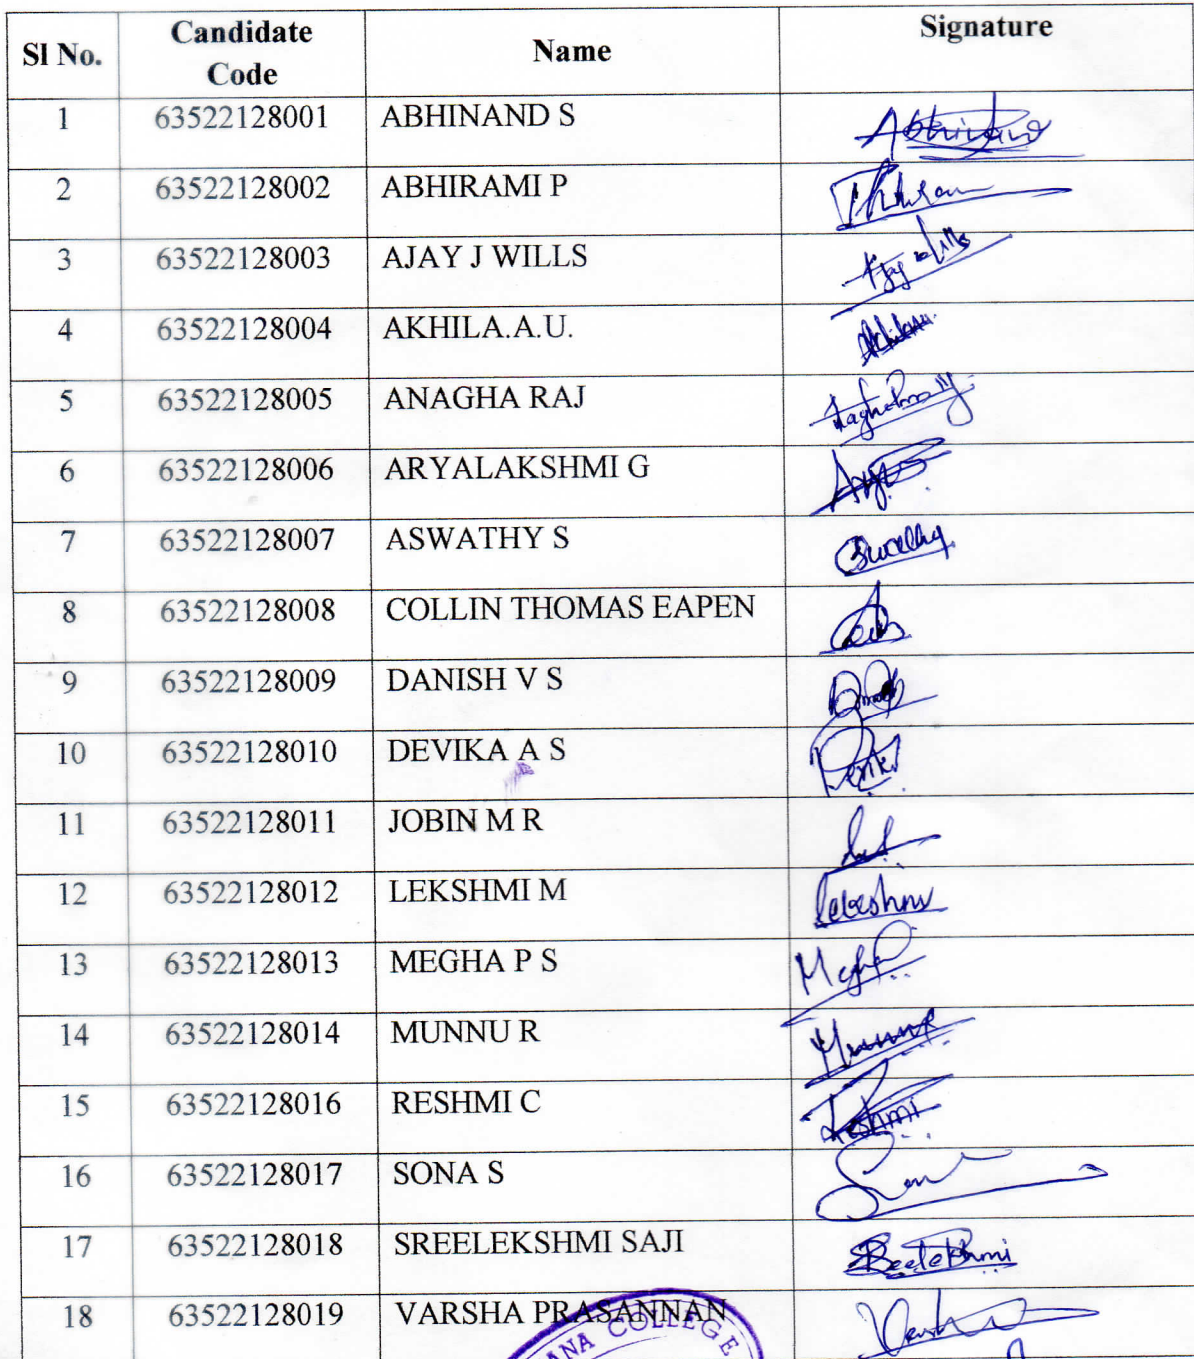 Sl No. Candidate Code Name Signature
1 63522128001 ABHINAND S Abhinand
2 63522128002 ABHIRAMI P
3 63522128003 AJAY J WILLS Ajay Wills
4 63522128004 AKHILA.A.U. Akhila
5 63522128005 ANAGHA RAJ
6 63522128006 ARYALAKSHMI G Arya
7 63522128007 ASWATHY S
8 63522128008 COLLIN THOMAS EAPEN
9 63522128009 DANISH V S
10 63522128010 DEVIKA A S
11 63522128011 JOBIN M R
12 63522128012 LEKSHMI M Lekshmi
13 63522128013 MEGHA P S Megha
14 63522128014 MUNNU R Munnu
15 63522128016 RESHMI C Reshmi
16 63522128017 SONA S
17 63522128018 SREELEKSHMI SAJI Sreelekshmi
18 63522128019 VARSHA PRASANNAN
ANA COLLEGE